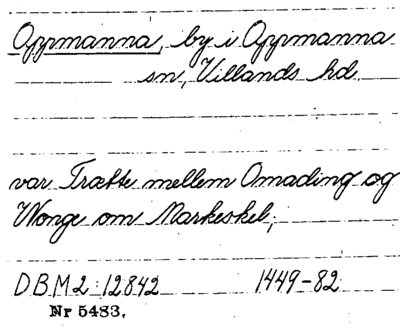 Oppmanna, by i Oppmanna
sn, Villands hd.
var Trætte mellem Omading og
Wonge om Markeskel;
DBM 2: 12842 1449-82
Nr 5483.